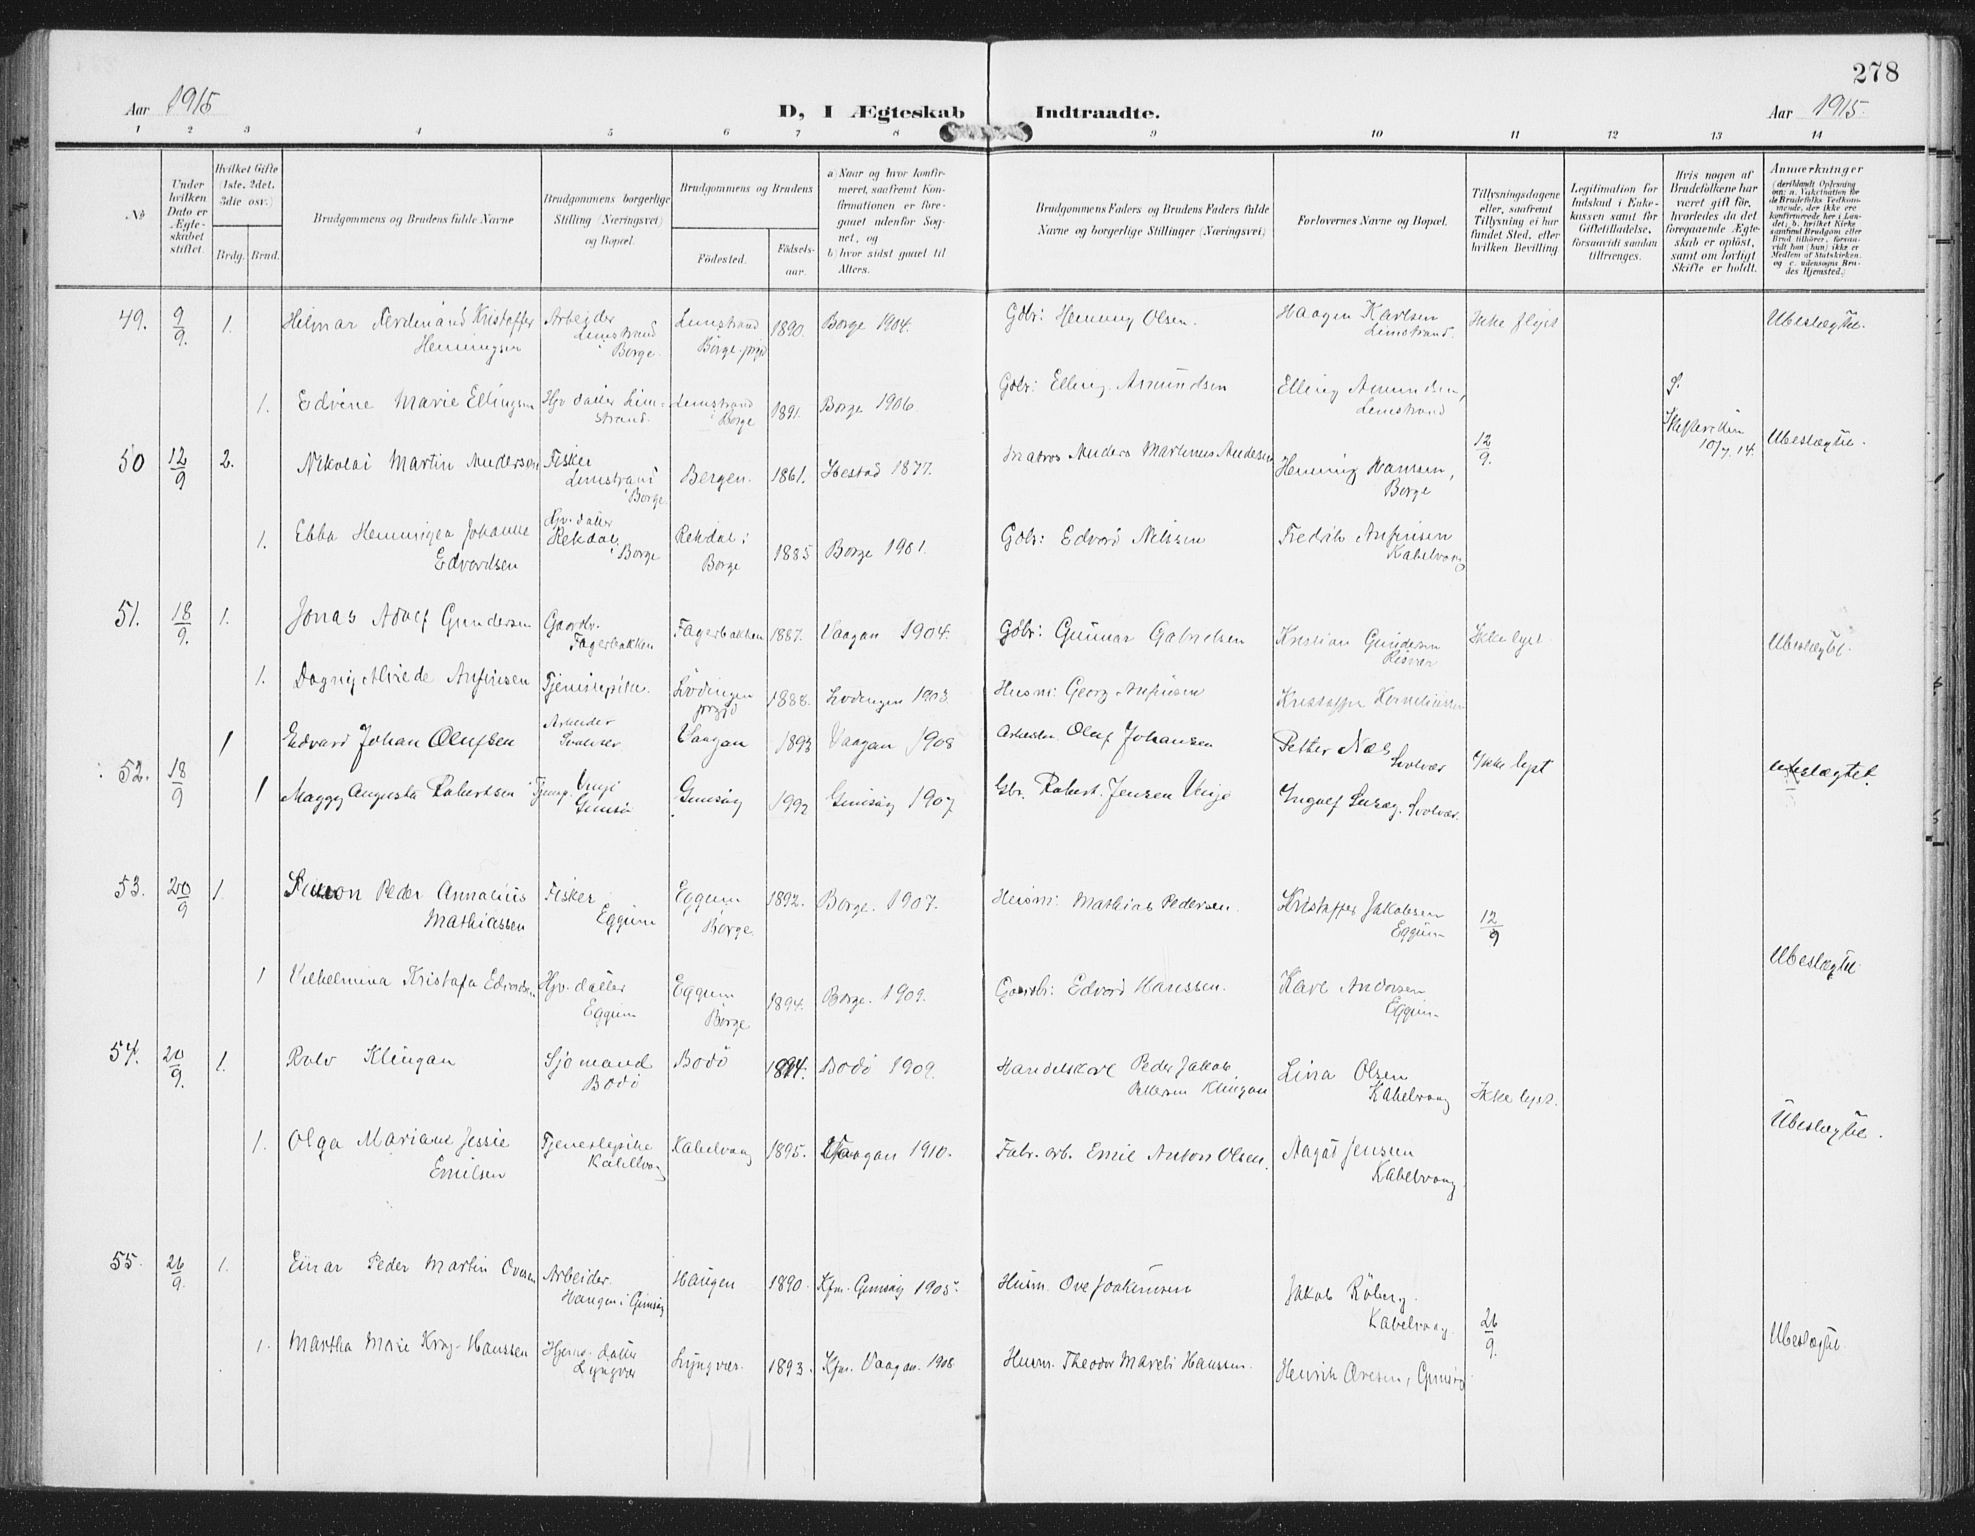 278
Aar 1915
D, I Ægteskab Indtraadte.
Aar 1915.
1 2 3 4 5 6 7 8 9 10 11 12 13 14
№
Under hvilken Dato er Ægteskabet stiftet.
Hvilket Gifte (1ste. 2det. 3die osv.)
Brdg. Brud.
Brudgommens og Brudens fulde Navne
Brudgommens borgerlige Stilling (Næringsvei) og Bopæl.
Brudgommens og Brudens
Fødested.
Fødselsaar.
a) Naar og hvor konfirmeret, saafremt Konfirmationen er foregaaet udenfor Sognet, og
b) hvor sidst gaaet til Alters.
Brudgommens Faders og Brudens Faders fulde Navne og borgerlige Stillinger (Næringsvei)
Forlovernes Navne og Bopæl.
Tillysningsdagene eller, saafremt Tillysning ei har fundet Sted, efter hvilken Bevilling
Legitimation for Indskud i Enkekassen samt for Giftetilladelse, forsaavidt saadan tiltrænges.
Hvis nogen af Brudefolkene har været gift før, hvorledes da det foregaaende Ægteskab er opløst, samt om lovligt Skifte er holdt.
Anmerkninger
(deriblandt Oplysning om: a. Vakcination for de Brudefolks Vedkommende, der ikke ere konfirmerede her i Landet; b. hvilket Kirkesamfund Brudgom eller Brud tilhører, forsaavidt han (hun) ikke er Medlem af Statskirken, og c. udensogns Brudes Hjemsted.)
49. 9/9. 1. Hilmar Ferdinand Kristoffer Arbeider Limstrand 1890. Borge 1904. Gdbr: Henning Olsen. Haagen Karlsen Ikke lyst Ubeslægtet.
Henningsen Limstrand i Borge. Borge prgjd Limstrand.
1. Edvine Marie Ellingsen Hjv. datter Limstrand. Limstrand i Borge 1891. Borge 1906. Gdbr: Elling Asmundsen Elling Amundsen, Limstrand
S.
10/7 14.
50 12/9 2. Nikolai Martin Andersen Fisker Limstrand i Borge Bergen. 1861. Ibestad 1877. Matros Anders Martinus Andersen Henning Hansen, Borge 12/9. Ubeslægtet.
1. Ebba Henningea Johanne Edvardsen Hjv. datter Rekdal i Borge Rekdal i Borge 1885 Borge 1901. Gdbr: Edvard Nilssen Fredrik Anfinsen Kabelvaag
51. 18/9. 1. Jonas Adolf Gundersen Gaardbr. Fagerbakken Fagerbakken 1887. Vaagan 1904. Gdbr: Gunnar Gabrielsen Kristian Gundersen Risvær Ikke lyst. Ubeslægtet.
1. Dagny Alvilde Anfinsen Tjenestepike. Lødingen prgjd 1888. Lødingen 1903. Husm: Georg Anfinsen Kristoffer Korneliussen
1 Edvard Johan Olufsen Arbeider Svolvær Vaagan 1893 Vaagan 1908 Arbeider Oluf Johansen Petter Næs Svolvær Ikke lyst
52. 18/9 ubeslægtet.
1 Maggy Augusta Robertsen Tjenp. Vinje Gimsø Gimsøy 1992 Gimsøy 1907 Gbr. Robert Jensen Vinje Ingvolf Svolvær.
53. 20/9 1. Simon Peder Annanius Mathiassen Fisker Eggum Eggum Borge 1892. Borge. 1907. Husm: Mathias Pedersen. Kristoffer Jakobsen Eggum 12/9
1 Vilhelmina Kristofa Edvardsen Hjv. datter Eggum Eggum Borge 1894. Borge. 1909. Gaardbr: Edvard Hanssen. Karl Andersen Eggum Ubeslægtet.
54. 20/9. 1. Rolv Klingan Sjømand Bodø Bodø 1894. Bodø 1909. Handelskarl Peder Jakob Pettersen Klingan Lina Olsen Kabelvaag Ikke lyst.
1. Olga Mariane Jessie Emilsen Tjenestepike Kabelvaag Kabelvaag 1895. Vaagan 1910. Fabr. arb. Emil Anton Olsen. Aagot Jensen Kabelvaag. Ubeslægtet.
55. 26/9. 1. Einar Peder Martin Ovesen Arbeider. Haugen i Gimsøy Haugen 1890. Kfm. Gimsøy 1905. Husm. Ove Joakimsen Jakob Röberg. Kabelvaag. 26/9.
1. Martha Marie Krog-Hanssen Hjems. datter Lyngvær Lyngvær. 1893. Kfm. Vaagan. 1908 Husm. Theodor Mareli Hanssen. Henrik Ovesen, Gimsøy. Ubeslægtet.